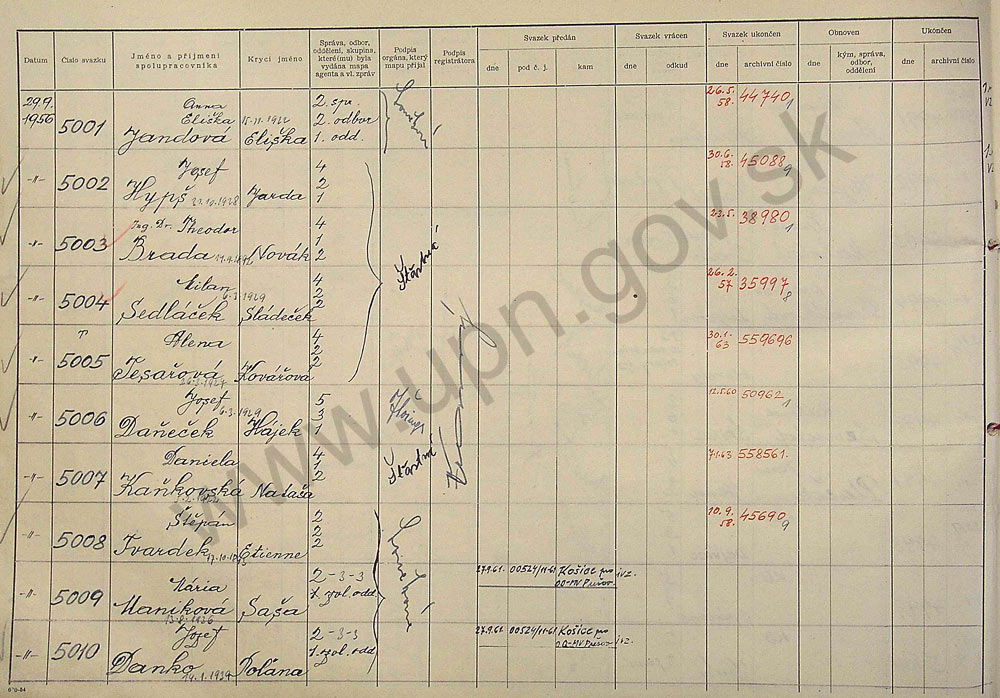 Datum
Číslo svazku
Jméno a příjmení
spolupracovníka
Krycí jméno
Správa, odbor,
oddělení, skupina,
které(mu) byla
vydána mapa
agenta a vl. zpráv
Podpis
orgána, který
mapu přijal
Podpis
registrátora
Svazek předán
dne
pod č. j.
kam
Svazek vrácen
dne
odkud
Svazek ukončen
dne
archivní číslo
Obnoven
dne
kým, správa,
odbor,
oddělení
Ukončen
dne
archivní číslo
29.9.
1956
5001
Anna
Eliška 15.11.1922
Jandová
Eliška
2. spr.
2. odbor
1. odd.
26.5.
58.
44740
1
-"-
5002
Josef
Hypš
Jarda
4
2
1
30.6.
58.
45088
9
-"-
5003
Ing. Dr. Theodor
Brada
Novák
4
1
2
23.5.
38980
1
-"-
5004
Milan
6.3.1929
Sedláček
Sládeček
4
2
2
26.2.
57
35997
8
-"-
5005
Alena
Tesařová
Kovářová
4
2
2
30.1.
63
559696
-"-
5006
Josef
6.3.1929
Daněček
Hájek
5
3
1
12.5.60
50962
1
-"-
5007
Daniela
Kaňkovská
Nataša
4
1
2
Šťastná
7.1.63
558561.
-"-
5008
Štěpan
Tvardek
Etienne
2
2
2
10.9.
58.
45690
9
-"-
5009
Mária
Maniková
13.8.1926
Saša
2-3-3
1. zvl. odd
27.9.61.
00524/11-61
Košice pro
IVZ.
OO-MV Prešov
-"-
5010
Jozef
Danko
14.1.1929
Poľana
2-3-3
1. zvl. odd
27.9.61.
00524/11-61
Košice pro
IVZ.
Šťastná
www.upn.gov.sk